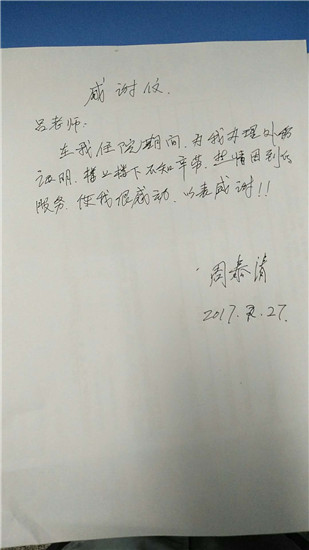 感谢仪.
吕老师:
在我住院期间.为我办理外
证明.楼上楼下不知辛劳.热情周到的
服务.使我很感动.以表感谢!!
周泰清
2017.2.27.